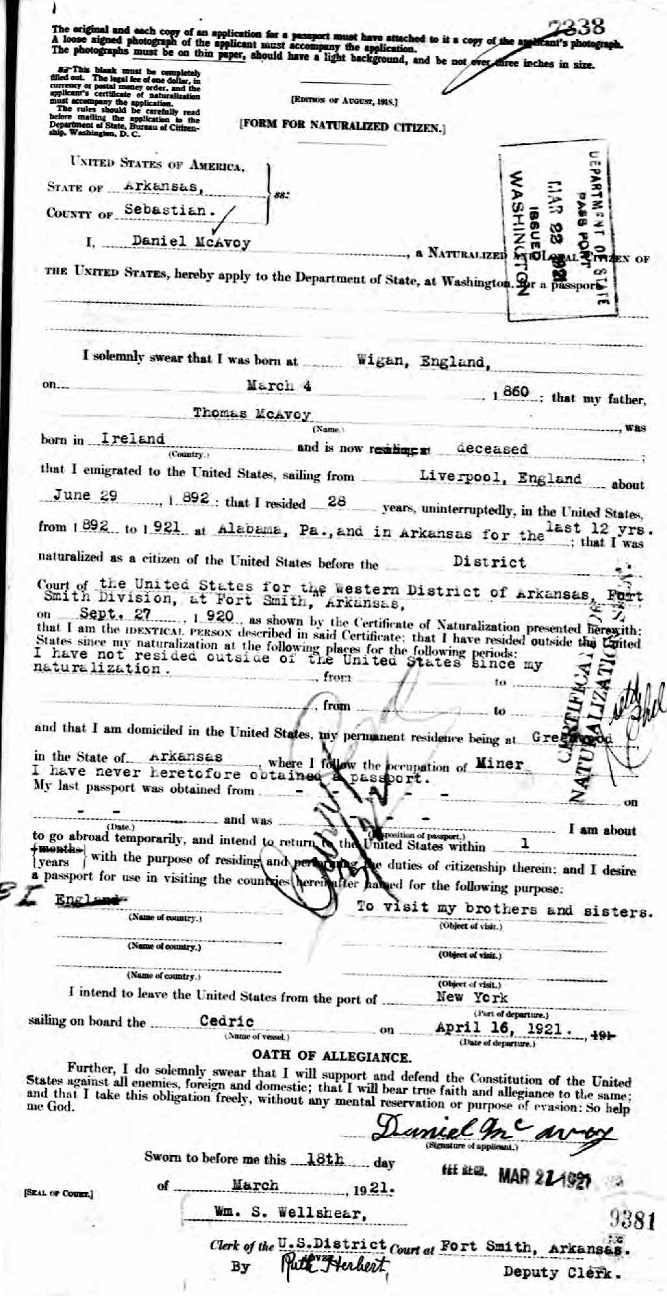 2338
The original and each copy of an application for a passport must have attached to it a copy of the applicant's photograph.
A loose signed photograph of the applicant must accompany the application.
The photographs must be on thin paper, should have a light background, and be not over three inches in size.
This blank must be completely
filled out. The legal fee of one dollar, in
currency or postal money order, and the
applicant's certificate of naturalization
must accompany the application.
The rules should be carefully read
before mailing the application to the
Department of State, Bureau of Citizen-
ship, Washington, D. C.
[EDITION OF AUGUST, 1918.]
[FORM FOR NATURALIZED CITIZEN.]
UNITED STATES OF AMERICA,
STATE OF Arkansas,
COUNTY OF Sebastian.
ss:
DEPARTMENT OF STATE
PASSPORT
MAR 22 1921
ISSUED
WASHINGTON
I, Daniel McAvoy, a NATURALIZED AND LOYAL CITIZEN OF
THE UNITED STATES, hereby apply to the Department of State, at Washington, for a passport
I solemnly swear that I was born at Wigan, England,
on March 4, 1860; that my father,
Thomas McAvoy, was
(Name.)
born in Ireland and is now residing at deceased;
(Country.)
that I emigrated to the United States, sailing from Liverpool, England about
June 29, 1892; that I resided 28 years, uninterruptedly, in the United States,
from 1892 to 1921 at Alabama, Pa., and in Arkansas for the last 12 yrs.; that I was
naturalized as a citizen of the United States before the District
Court of the United States for the Western District of Arkansas, Fort
Smith Division, at Fort Smith, Arkansas,
on Sept. 27, 1920, as shown by the Certificate of Naturalization presented herewith;
that I am the IDENTICAL PERSON described in said Certificate; that I have resided outside the United
States since my naturalization at the following places for the following periods:
I have not resided outside of the United States since my
naturalization.
, from to
, from to
CERTIFICATE OF
NATURALIZATION SEEN.
and that I am domiciled in the United States, my permanent residence being at Greenwood
in the State of Arkansas, where I follow the occupation of Miner
I have never heretofore obtained a passport.
My last passport was obtained from - - - on
- - and was - - I am about
(Date.) (Disposition of passport.)
to go abroad temporarily, and intend to return to the United States within 1
{months
{years} with the purpose of residing and performing the duties of citizenship therein; and I desire
a passport for use in visiting the countries hereinafter named for the following purpose:
B I England To visit my brothers and sisters.
(Name of country.) (Object of visit.)
(Name of country.) (Object of visit.)
(Name of country.) (Object of visit.)
I intend to leave the United States from the port of New York
(Port of departure.)
sailing on board the Cedric on April 16, 1921., 191-
(Name of vessel.) (Date of departure.)
OATH OF ALLEGIANCE.
Further, I do solemnly swear that I will support and defend the Constitution of the United
States against all enemies, foreign and domestic; that I will bear true faith and allegiance to the same;
and that I take this obligation freely, without any mental reservation or purpose of evasion: So help
me God.
Daniel McAvoy
(Signature of applicant.)
Sworn to before me this 18th day
FEE RECD. MAR 21 1921
of March, 1921.
[SEAL OF COURT.]
Wm. S. Wellshear,
9381
Clerk of the U.S.District Court at Fort Smith, Arkansas.
By Ruth Herbert, Deputy Clerk.